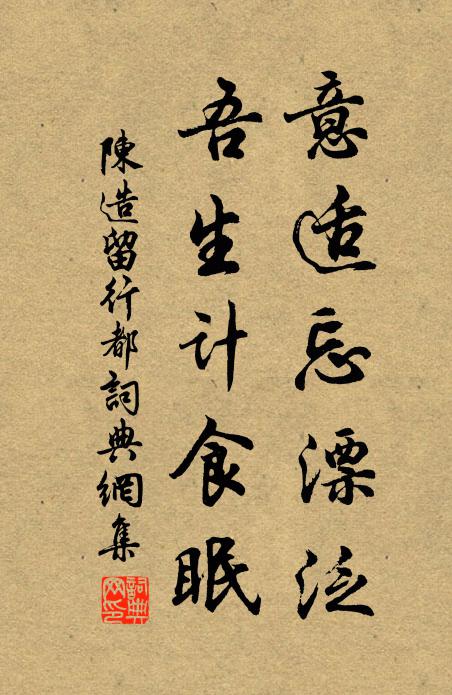 意适忘漂泛
吾生计食眠
陳造留行都詞典網集
詞典网印